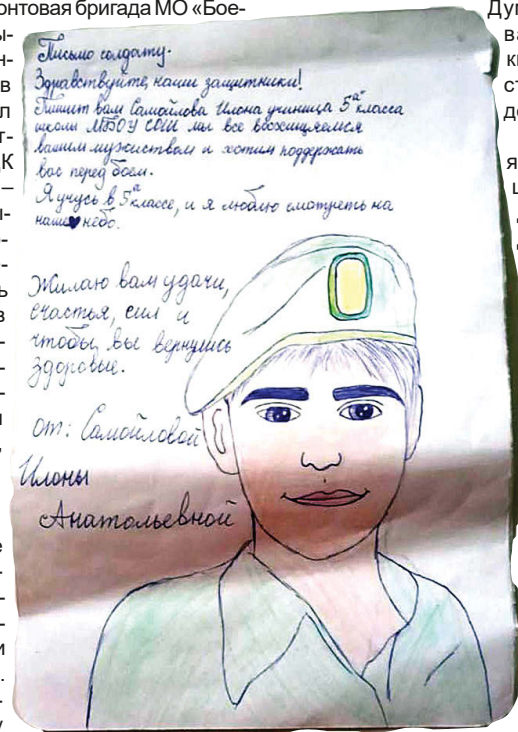 онтовая бригада МО «Бое-
Письмо солдату.
Здравствуйте, наши защитники!
Пишит вам Самойлова Илона ученица 5 "а" класса
школы МБОУ СОШ мы все восхищяемся
вашим мужиством и хотим поддержать
вас перед боем.
Я учусь в 5 "а" классе, и я люблю смотреть на
наше небо.
Жилаю вам удачи,
счастья, сил и
чтобы, вы вернулись
здоровые.
от: Самойловой
Илоны
Анатольевной